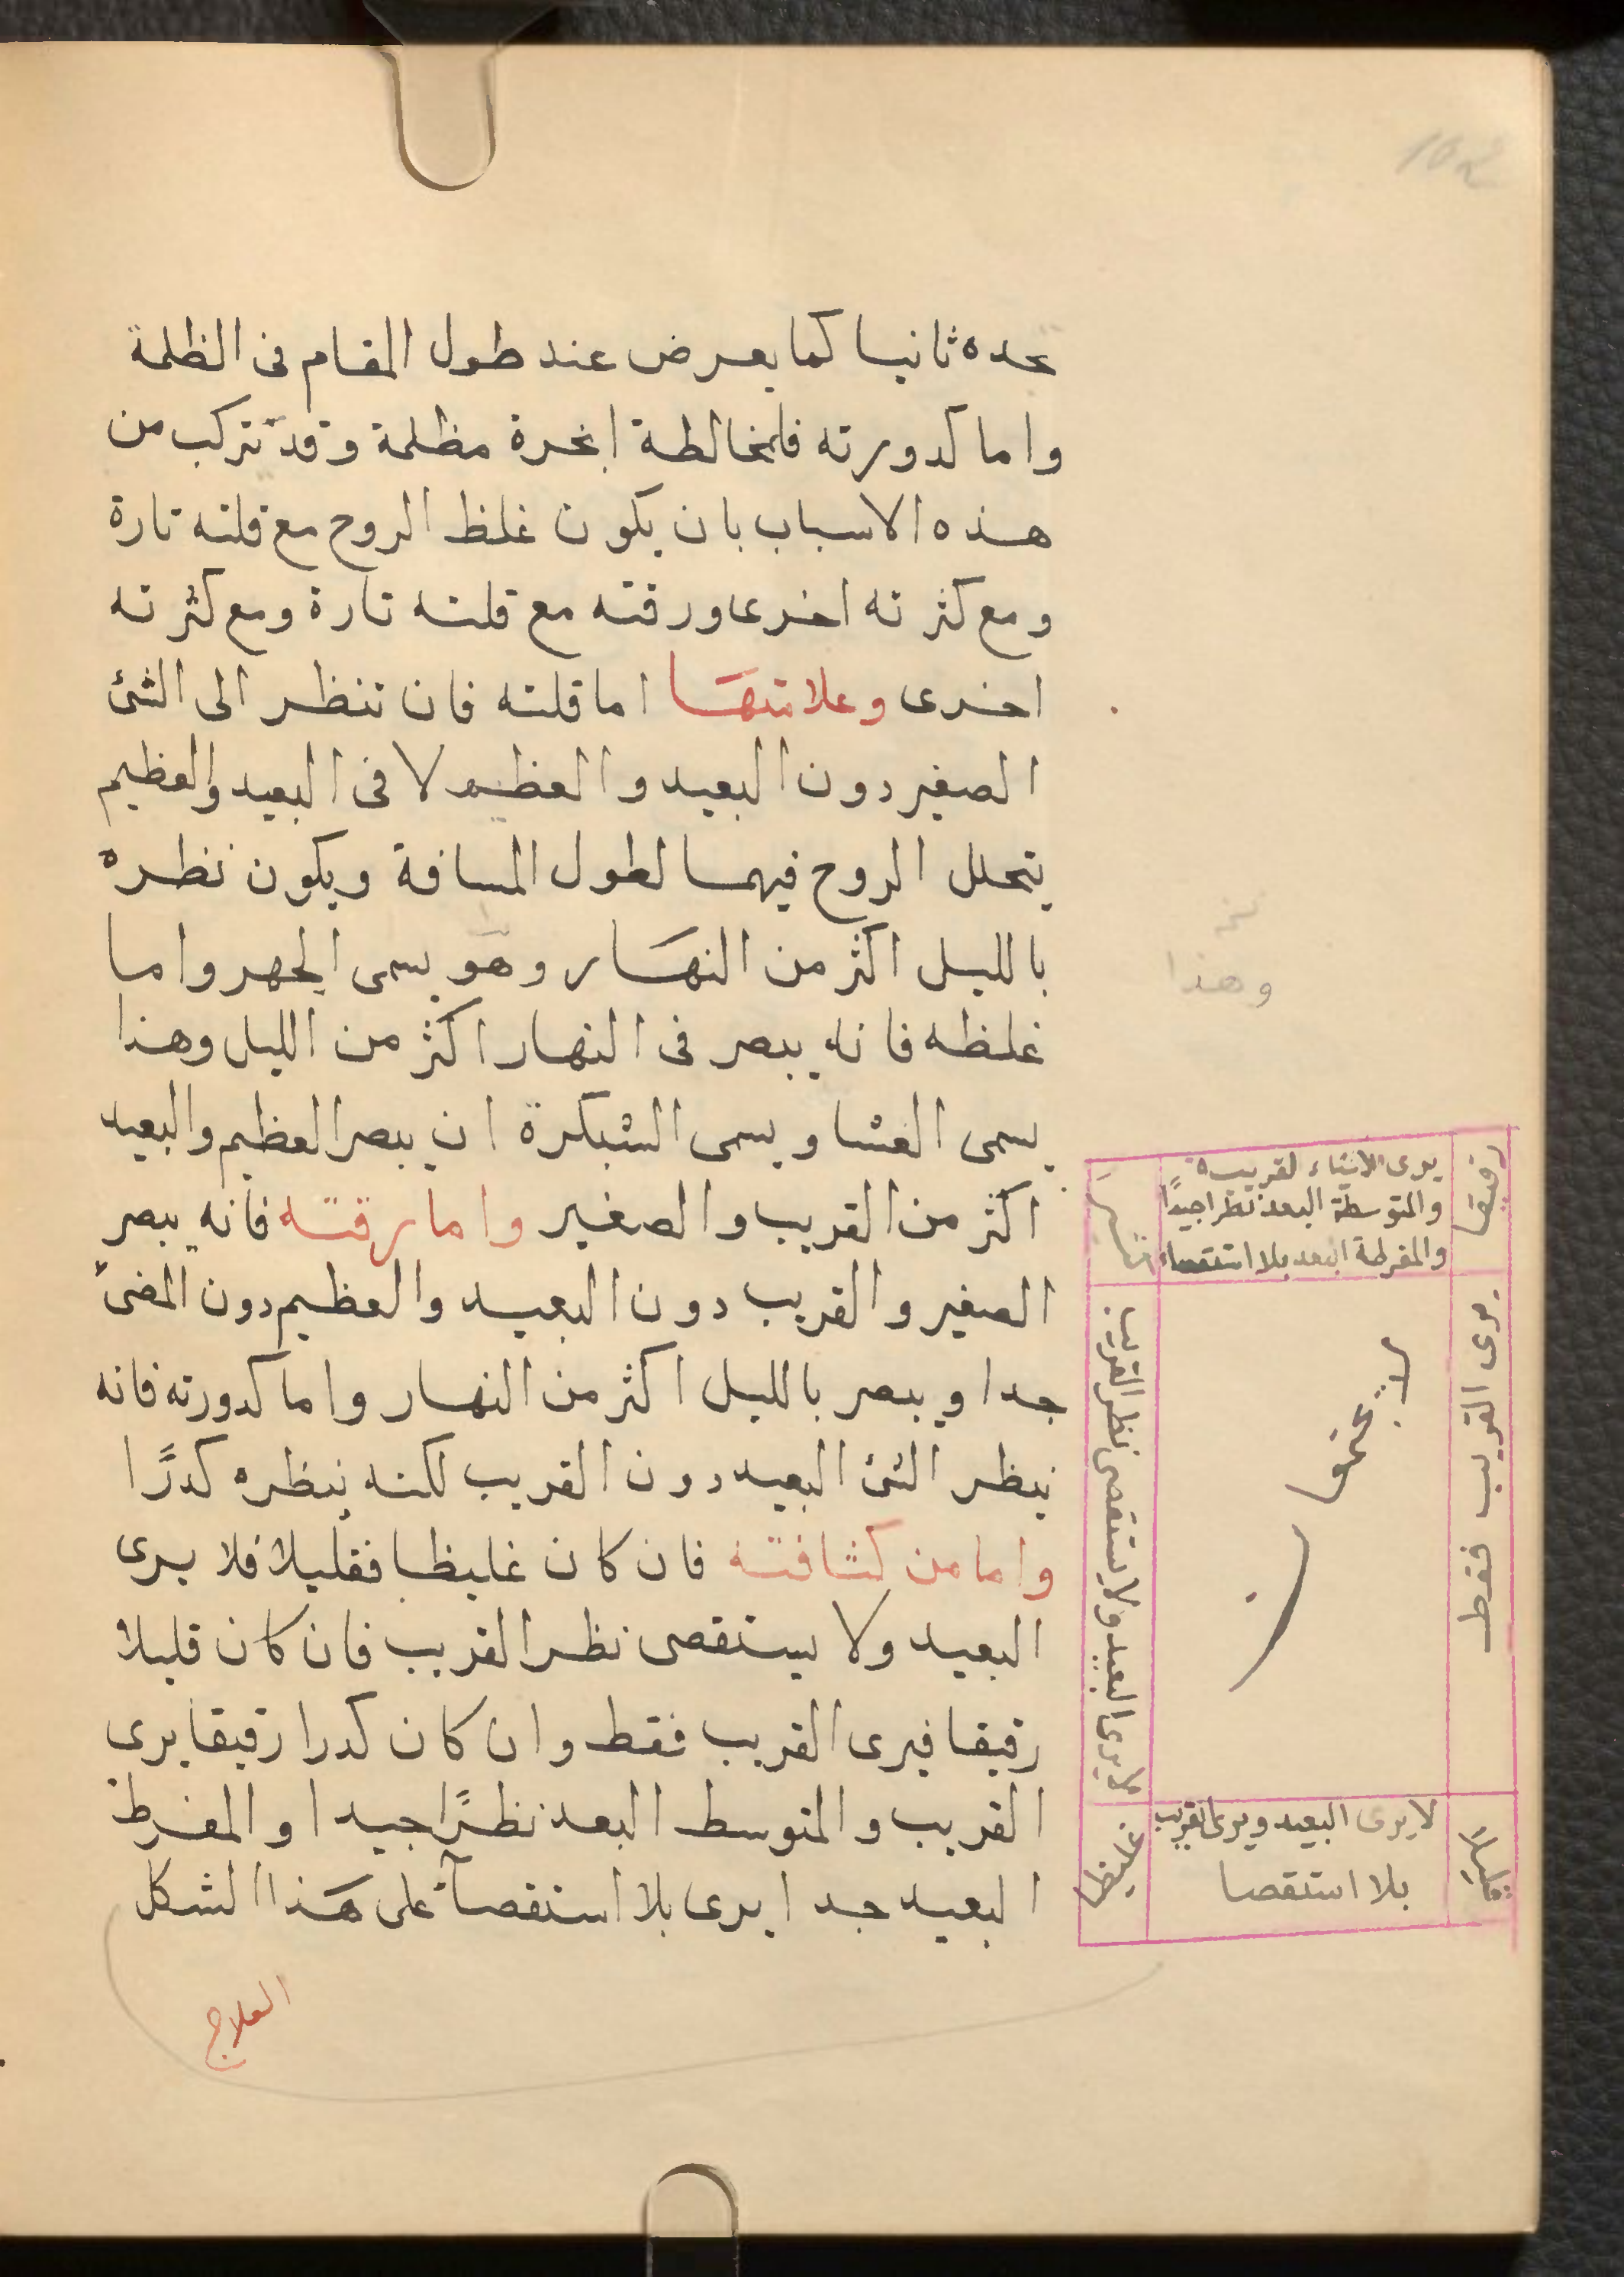 102
عده ثانيا كما يعرض عند طول المقام فى الظلمة
واما كدورته فلمخالطة ابخرة مظلمة وقد تتركب من
هذه الاسباب بان يكون غلظ الروح مع قلته تارة
ومع كثرته اخرى ورقته مع قلته تارة ومع كثرته
اخرى وعلامتها اما قلته فان تنظر الى الشئ
الصغير دون البعيد والعظيم لا فى البعيد والعظيم
يتحلل الروح فيهما لطول المسافة ويكون نظره
بالليل اكثر من النهار وهو يسمى الجهر واما
غلظه فانه يبصر فى النهار اكثر من الليل وهذا
يسمى العشا ويسمى الشبكرة ان يبصر العظيم والبعيد
اكثر من القريب والصغير واما رقته فانه يبصر
الصغير والقريب دون البعيد والعظيم دون المضئ
جدا ويبصر بالليل اكثر من النهار واما كدورته فانه
ينظر الشئ البعيد دون القريب لكنه ينظره كدرًا
واما من كثافته فان كان غليظا فقليلا فلا يرى
البعيد ولا يستقصى نظر القريب فان كان قليلا
رقيقا فيرى القريب فقط وان كان كدرا رقيقا يرى
القريب والمتوسط البعد نظرًا جيدا والمفرط
البعيد جدا يرى بلا استقصآء على هذا الشكل
العلاج
وهذا
رقيقا
يرى الاشياء القريبة
والمتوسطة البعد نظرا جيدًا
والمفرطة البعد بلا استقصاء
يرى القريب فقط
لا يجتمعان
لا يرى البعيد ولا يستقصى نظر القريب
قليلاً
لا يرى البعيد ويرى القريب
بلا استقصا
غليظا